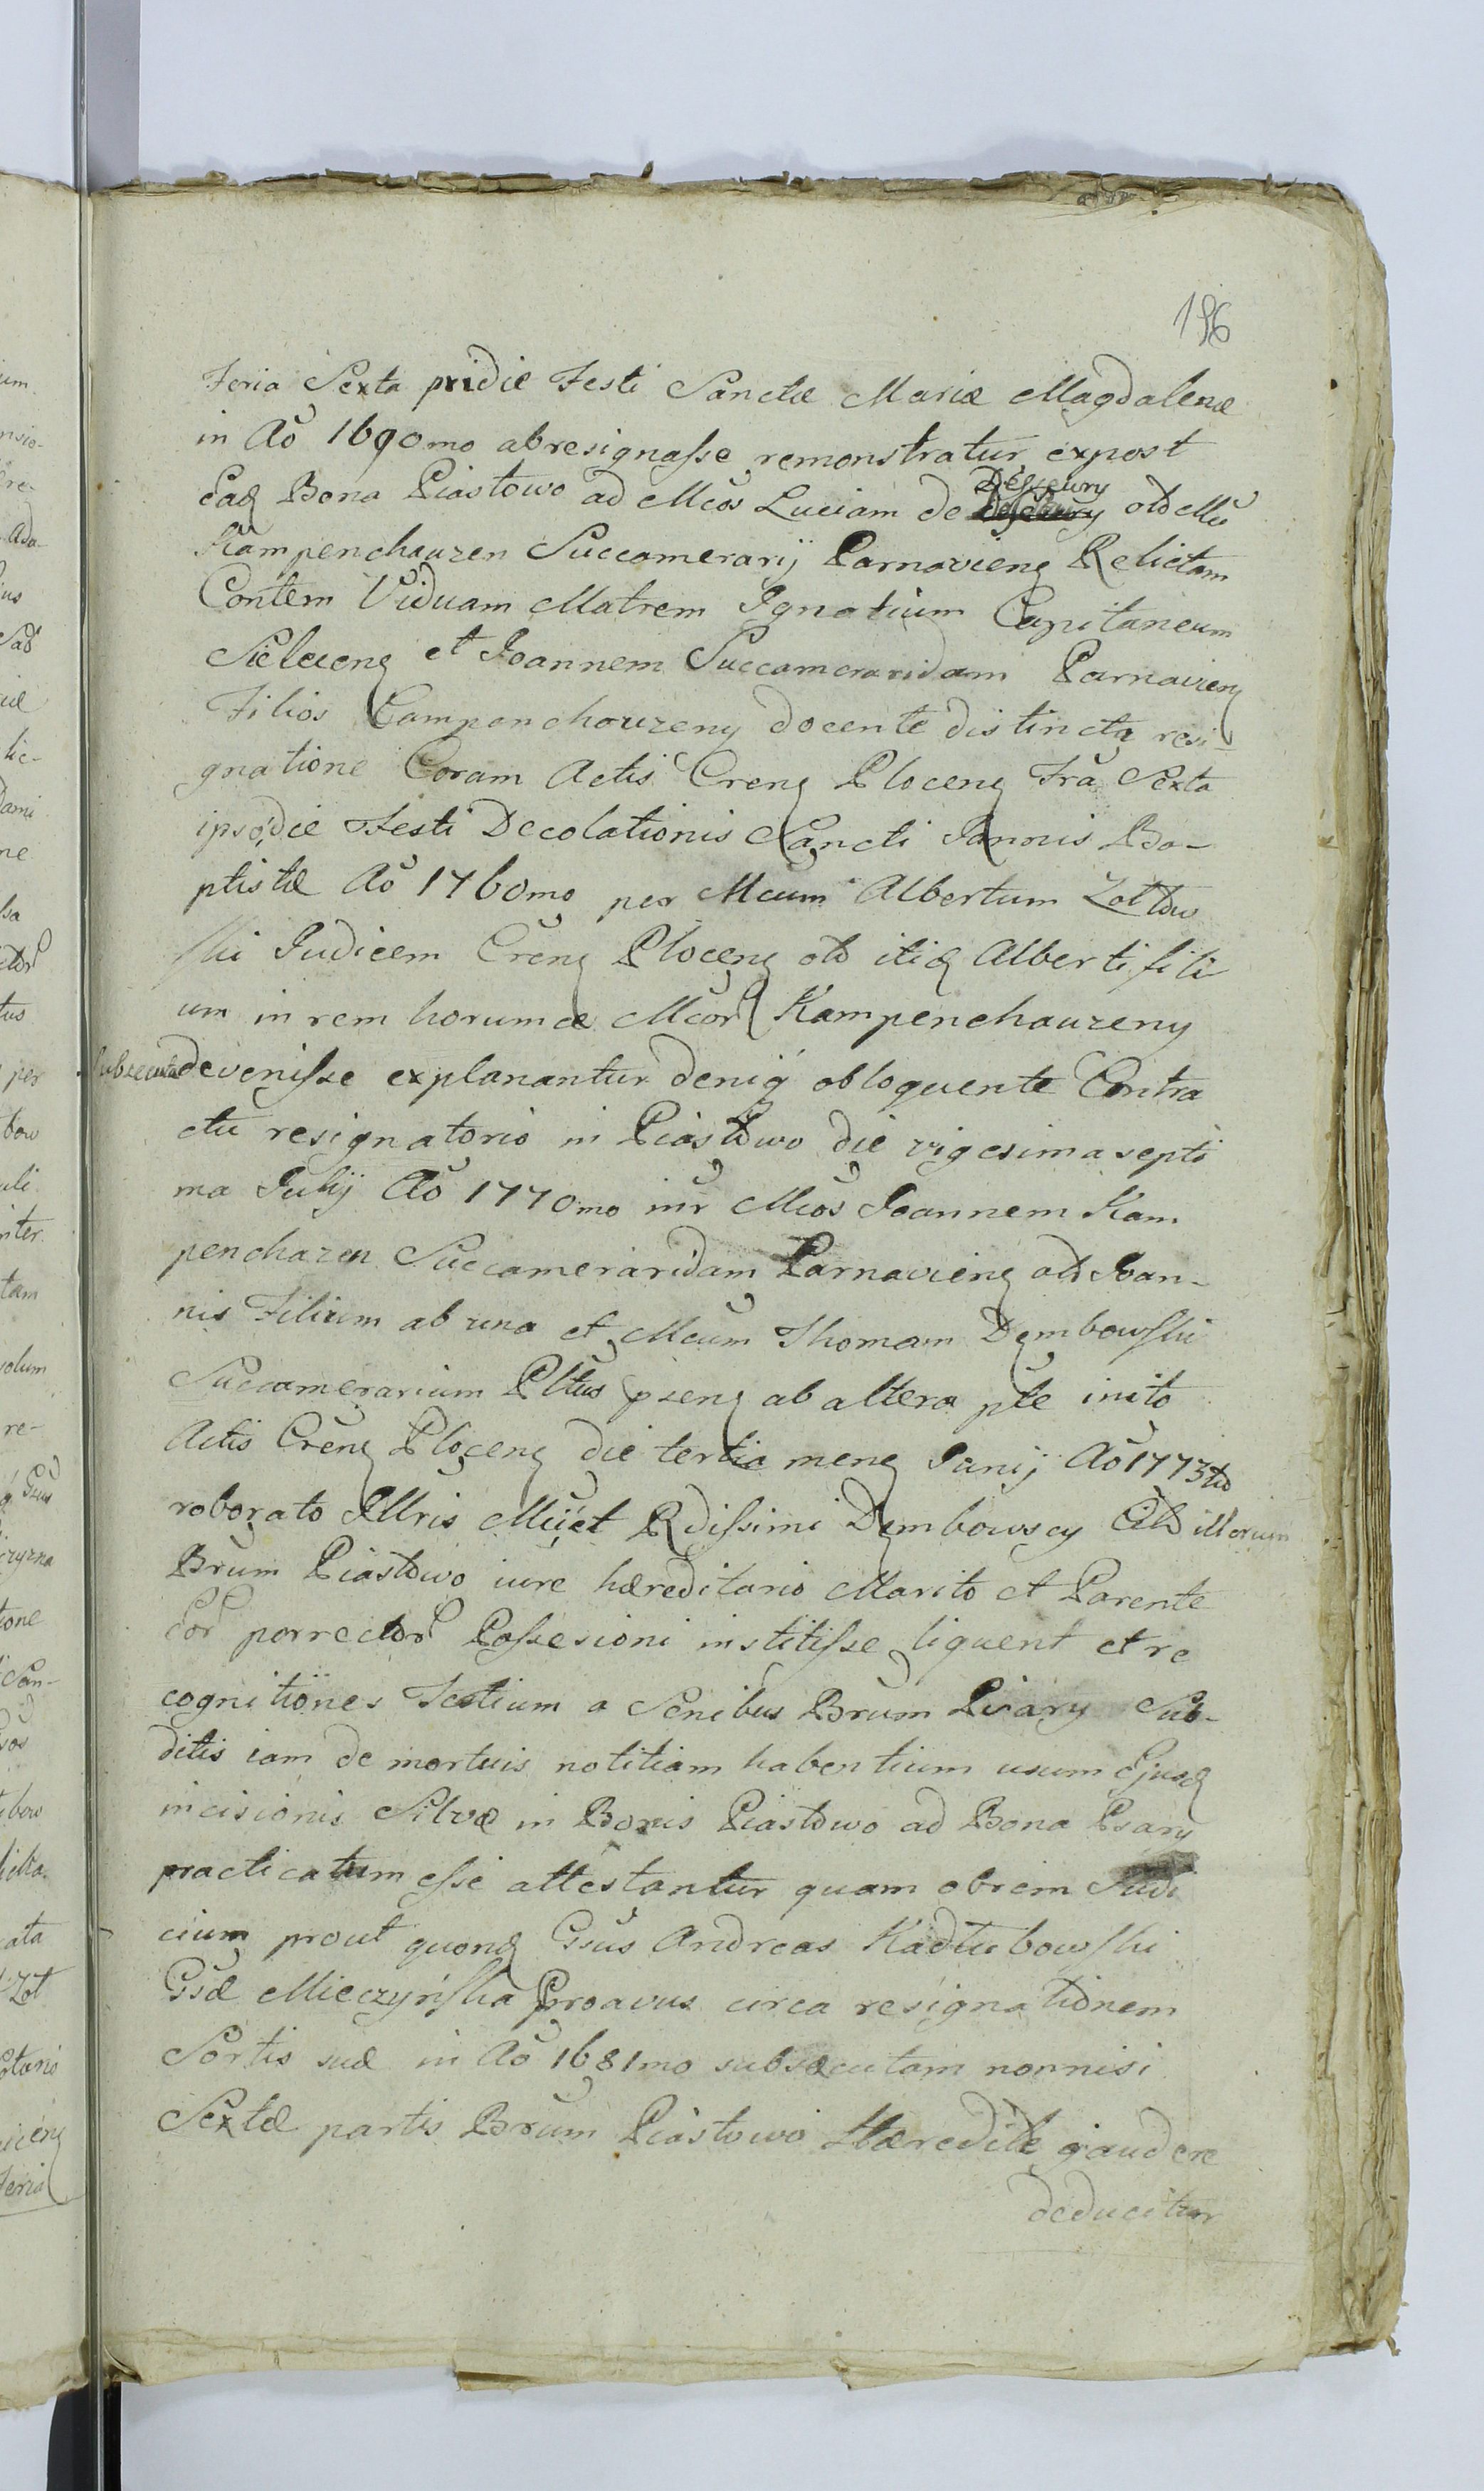 196
Feria Sexta pridie Festi Sanctæ Mariæ Magdalenæ
in Aõ 1690mo abresignasse remonstratur expost
Eadȝ Bona Piastowo ad Mcos Luciam de Desseury olD Mci
Kampenchauzen Succamerarij Parnavienȝ Relictam
Contem Viduam Matrem Ignatium Capitaneum
Sielecenȝ et Joannem Succameraridam Parnavienȝ
Filios Campenchouzeny docente distincta resi-
gnatione Coram Actis Crenȝ Plocenȝ Frã Sexta
ipso die Festi Decolationis Sancti Joannis Ba-
ptistæ Aõ 1760mo per Mcum Albertum Zołtow
ski Judicem Crenȝ Plocenȝ olD itidȝ Alberti fili
um in rem horumce Mcor Kampenchauzeny
subsecuta devenisse explanantur deniq obloquente Contra
ctu resignatorio in Piastowo die vigesima septi
ma Julij Aõ 1770mo inr Mcos Joannem Kam
penchazen Succameraridam Parnavienȝ olD Joan-
nis Filium ab una et Mcum Thomam Dembowski
Succamerarium Pltus psenȝ ab altera pte inito
Actis Crenȝ Plocenȝ die tertia menȝ Junij Aõ 1773tio
roborato Illris Mci et Rdissimi Dembowscy illorum
Brum Piastowo iure hæreditario Marito et Parente
Eor porrector Possesioni institisse liquent et re
cognitiones Testium a Senibus Brum Psary Sub-
ditis iam de mortuis notitiam habentium usum Ejusdȝ
incisionis Silvæ in Bonis Piastowo ad Bona Psary
practicatum esse attestantur quam obrem Judi
cium prout quondȝ Gsus Andreas Kadłubowski
Gsæ Mieczyńska Proavus circa resignationem
Sortis suæ in Aõ 1681mo subsæcutam nonnisi
Sextæ partis Brum Piastowo Hæredite gaudere
deducitur